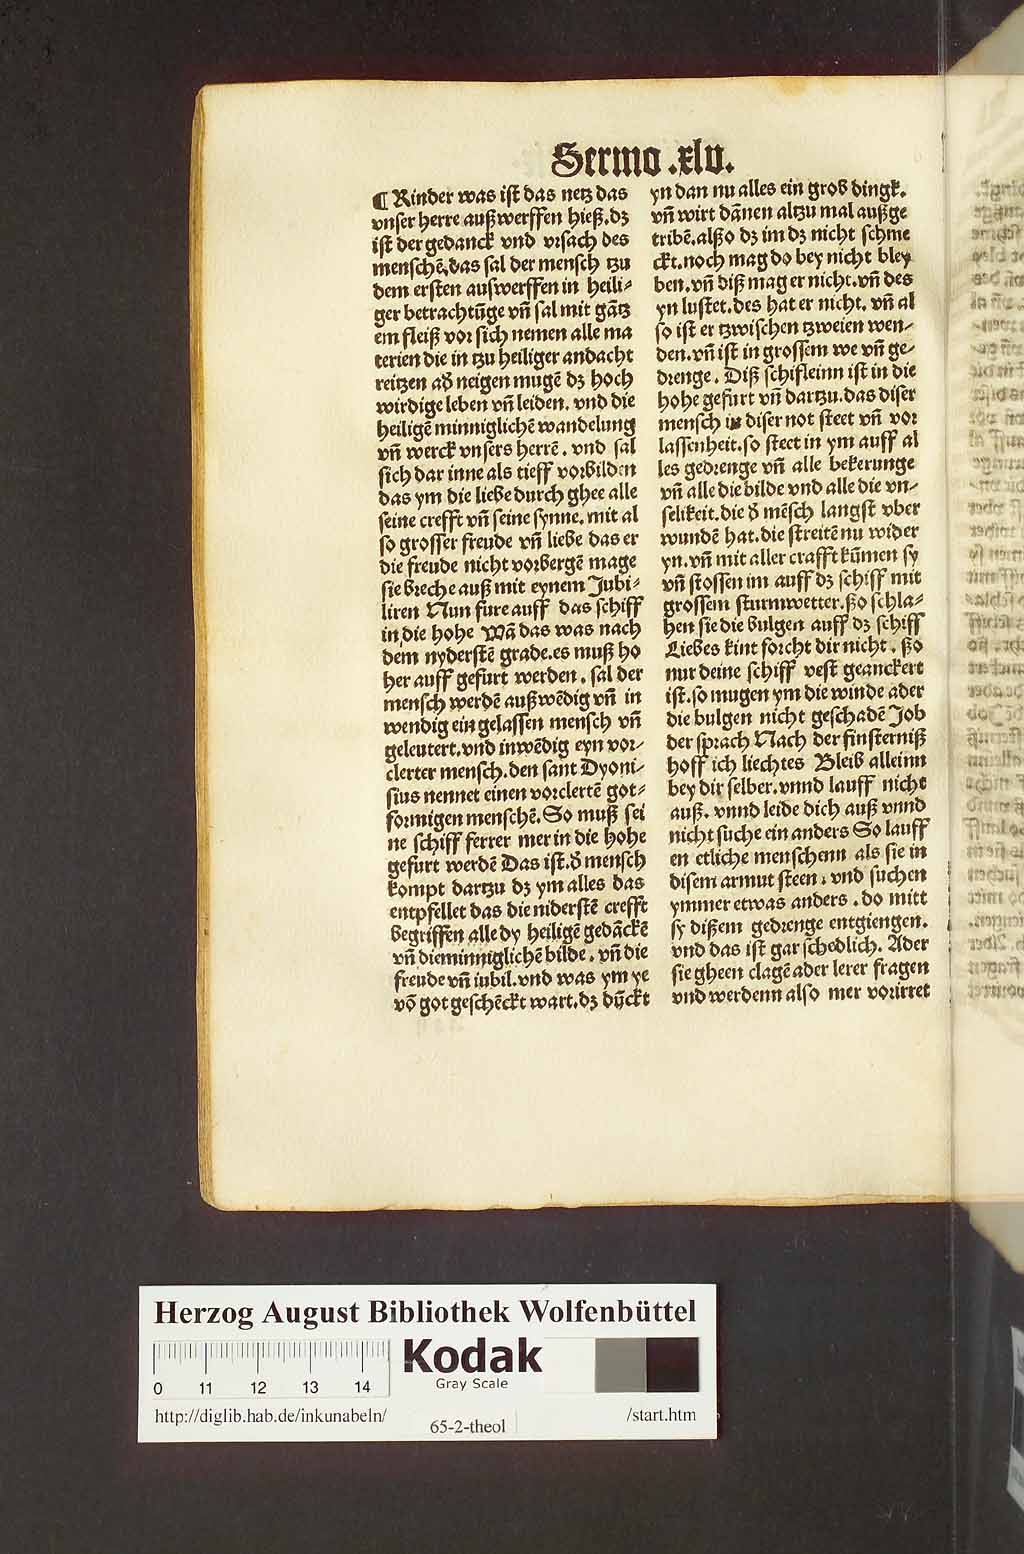 Sermo .xlv.
¶ Kinder was ist das netz das
vnser herre außwerffen hieß.dz
ist der gedanck vnd vrsach des
menschē.das sal der mensch tzu
dem ersten auswerffen in heili⸗
ger betrachtūge vn̄ sal mit gātz
em fleiß vor sich nemen alle ma
terien die in tzu heiliger andacht
reitzen ad̕ neigen mugē dz hoch
wirdige leben vn̄ leiden. vnd die
heiligē minniglichē wandelung
vn̄ werck vnsers herrē. vnd sal
sich dar inne als tieff vorbilden
das ym die liebe durch ghee alle
seine crefft vn̄ seine synne. mit al
so grosser freude vn̄ liebe das er
die freude nicht vorbergē mage
sie breche auß mit eynem Jubi⸗
liren Nun fure auff das schiff
in die hohe Wā das was nach
dem nyderstē grade.es muß ho
her auff gefurt werden. sal der
mensch werdē außwēdig vn̄ in
wendig ein gelassen mensch vn̄
geleutert.vnd inwēdig eyn vor⸗
clerter mensch.den sant Dyoni⸗
sius nennet einen vorclertē got⸗
formigen menschē. So muß sei
ne schiff ferrer mer in die hohe
gefurt werdē Das ist.d̕ mensch
kompt dartzu dz ym alles das
entpfellet das die niderstē crefft
begriffen alle dy heiligē gedāckē
vn̄ die minniglichē bilde. vn̄ die
freude vn̄ iubil.vnd was ym ye
vō got geschēckt wart.dz dūckt
yn dan nu alles ein grob dingk.
vn̄ wirt dānen altzu mal außge
tribē.alßo dz im dz nicht schme
ckt.noch mag do bey nicht bley
ben.vn̄ diß mag er nicht.vn̄ des
yn lustet.des hat er nicht. vn̄ al
so ist er tzwischen tzweien wen⸗
den.vn̄ ist in grossem we vn̄ ge⸗
drenge. Diß schifleinn ist in die
hohe gefurt vn̄ dartzu.das diser
mensch in diser not steet vn̄ vor
lassenheit.so steet in ym auff al
les gedrenge vn̄ alle bekerunge
vn̄ alle die bilde vnd alle die vn⸗
selikeit.die d̕ mēsch langst vber
wundē hat.die streitē nu wider
yn.vn̄ mit aller crafft kūmen sy
vn̄ stossen im auff dz schiff mit
grossem sturmwetter.ßo schla⸗
hen sie die bulgen auff dz schiff
Liebes kint forcht dir nicht. ßo
nur deine schiff vest geanckert
ist.so mugen ym die winde ader
die bulgen nicht geschadē Job
der sprach Nach der finsterniß
hoff ich liechtes Bleib alleinn
bey dir selber.vnnd lauff nicht
auß. vnnd leide dich auß vnnd
nicht suche ein anders So lauff
en etliche menschenn als sie in
disem armut steen. vnd suchen
ymmer etwas anders. do mitt
sy dißem gedrenge entgiengen.
vnd das ist gar schedlich. Ader
sie gheen clagē ader lerer fragen
vnd werdenn also mer vorirret
Herzog August Bibliothek Wolfenbüttel
Kodak
Gray Scale
0 11 12 13 14
http://diglib.hab.de/inkunabeln/
65-2-theol
/start.htm